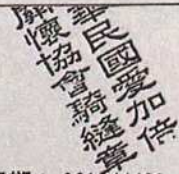 華民國愛加倍
關懷協會騎縫章